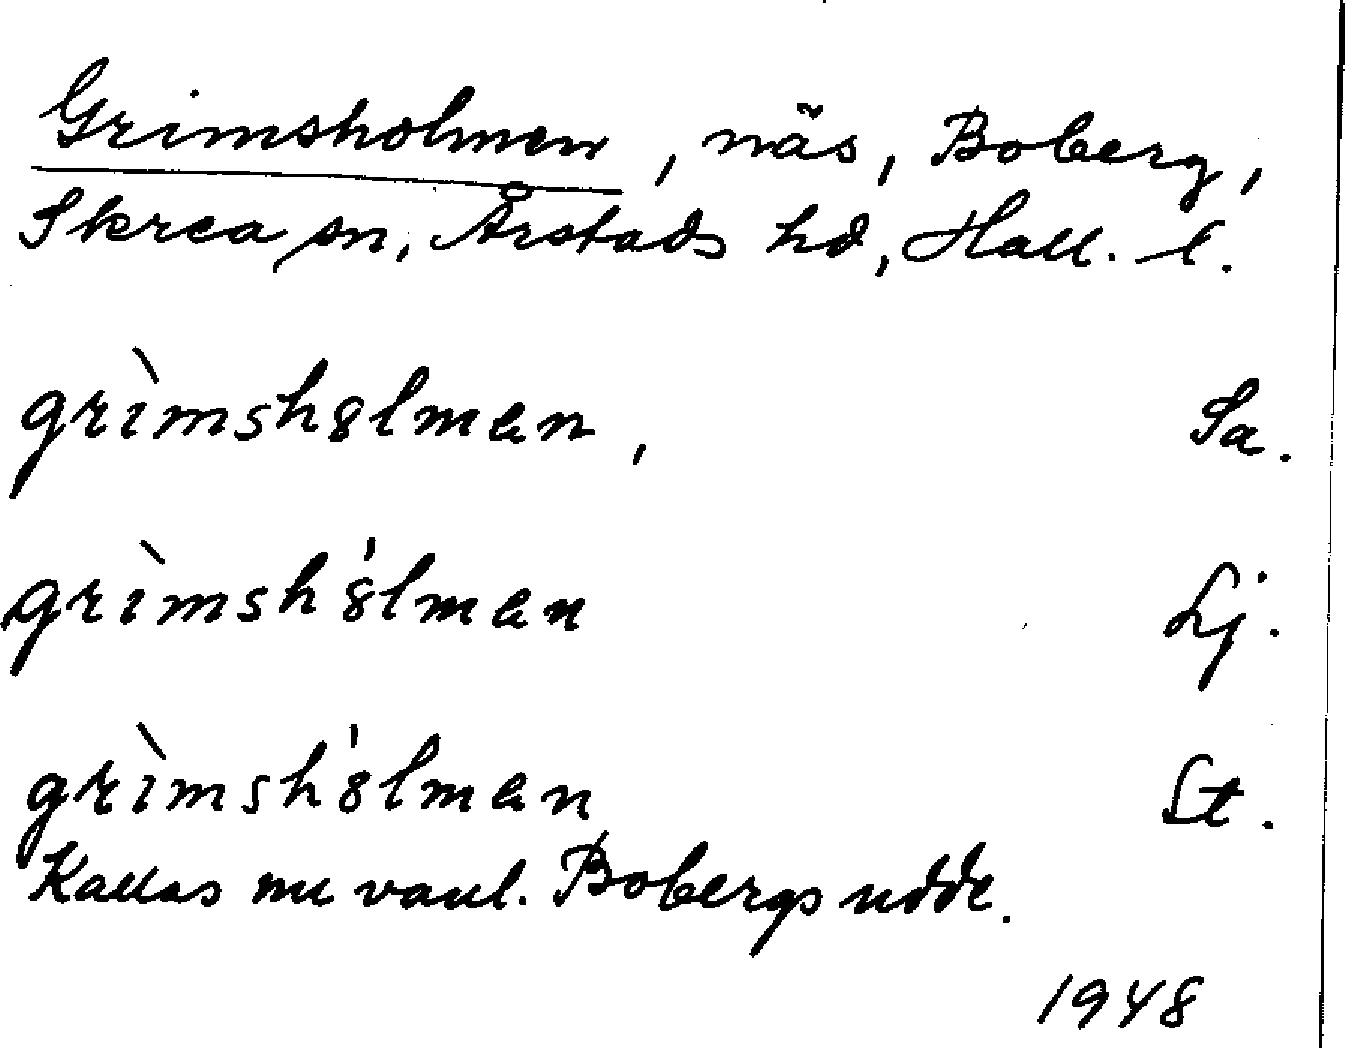 Grimsholmen, näs, Boberg,
Skrea sn, Årstads hd, Hall. l.
grìmshɞlmen, Sa.
grìmshɞ́lmen Lj.
grìmshɞ́lmen St.
Kallas nu vanl. Bobergs udde.
1948